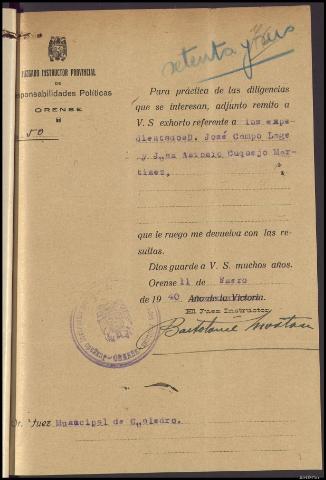 setenta y seis
JUZGADO INSTRUCTOR PROVINCIAL
DE
Responsabilidades Políticas
ORENSE
Para práctica de las diligencias
que se interesan, adjunto remito a
V. S exhorto referente a los expe-
dientadosD. José Campo Lage
y Juan Marcelo Cuquejo Mar-
tinez,
que le ruego me devuelva con las re-
sultas.
Dios guarde a V. S. muchos años.
Orense 11 de Enero
de 19 40 Año de la Victoria.
El Juez Instructor
Bartolomé
Sr. Juez Muancipal de C,,aledro.